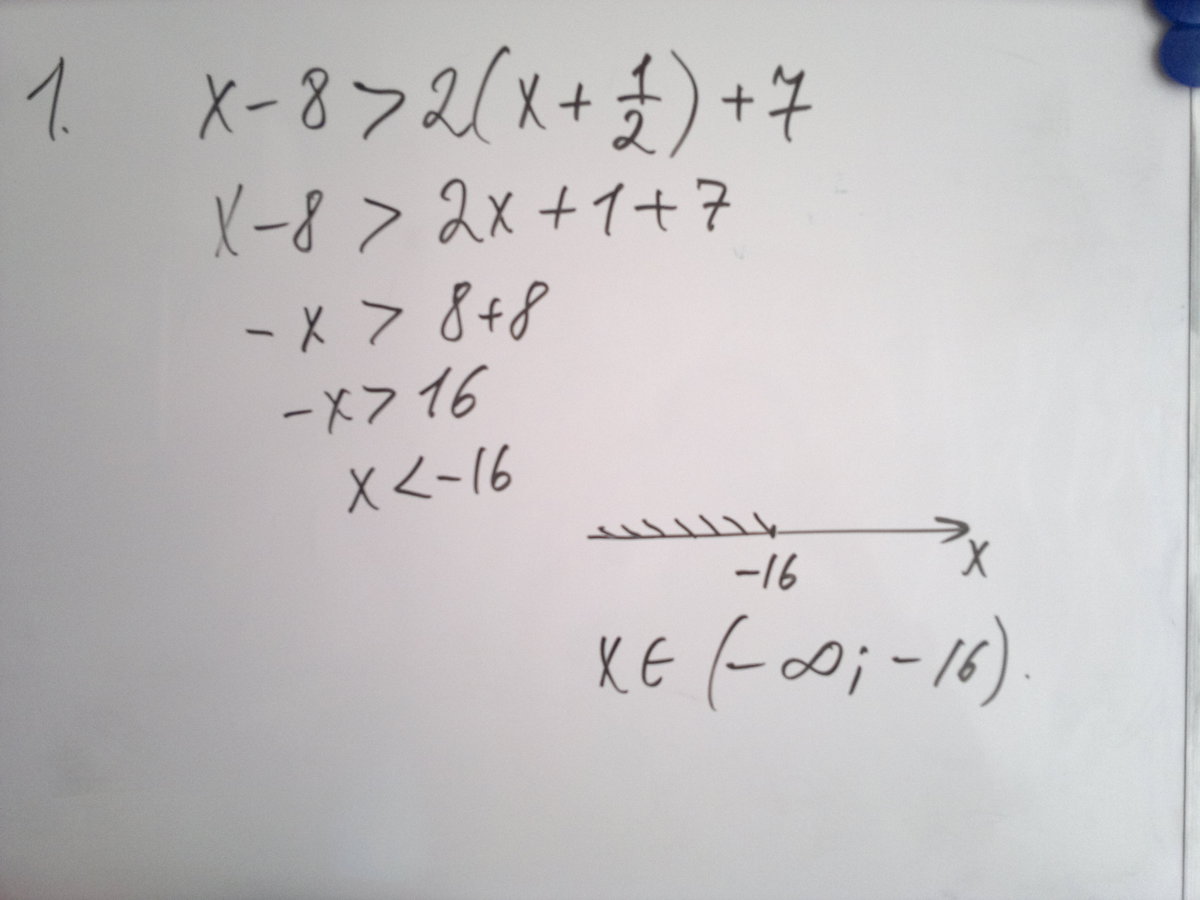 1. x - 8 > 2(x + 1/2) + 7
x - 8 > 2x + 1 + 7
- x > 8 + 8
- x > 16
x < -16
-16 x
x ∈ (-∞; -16).